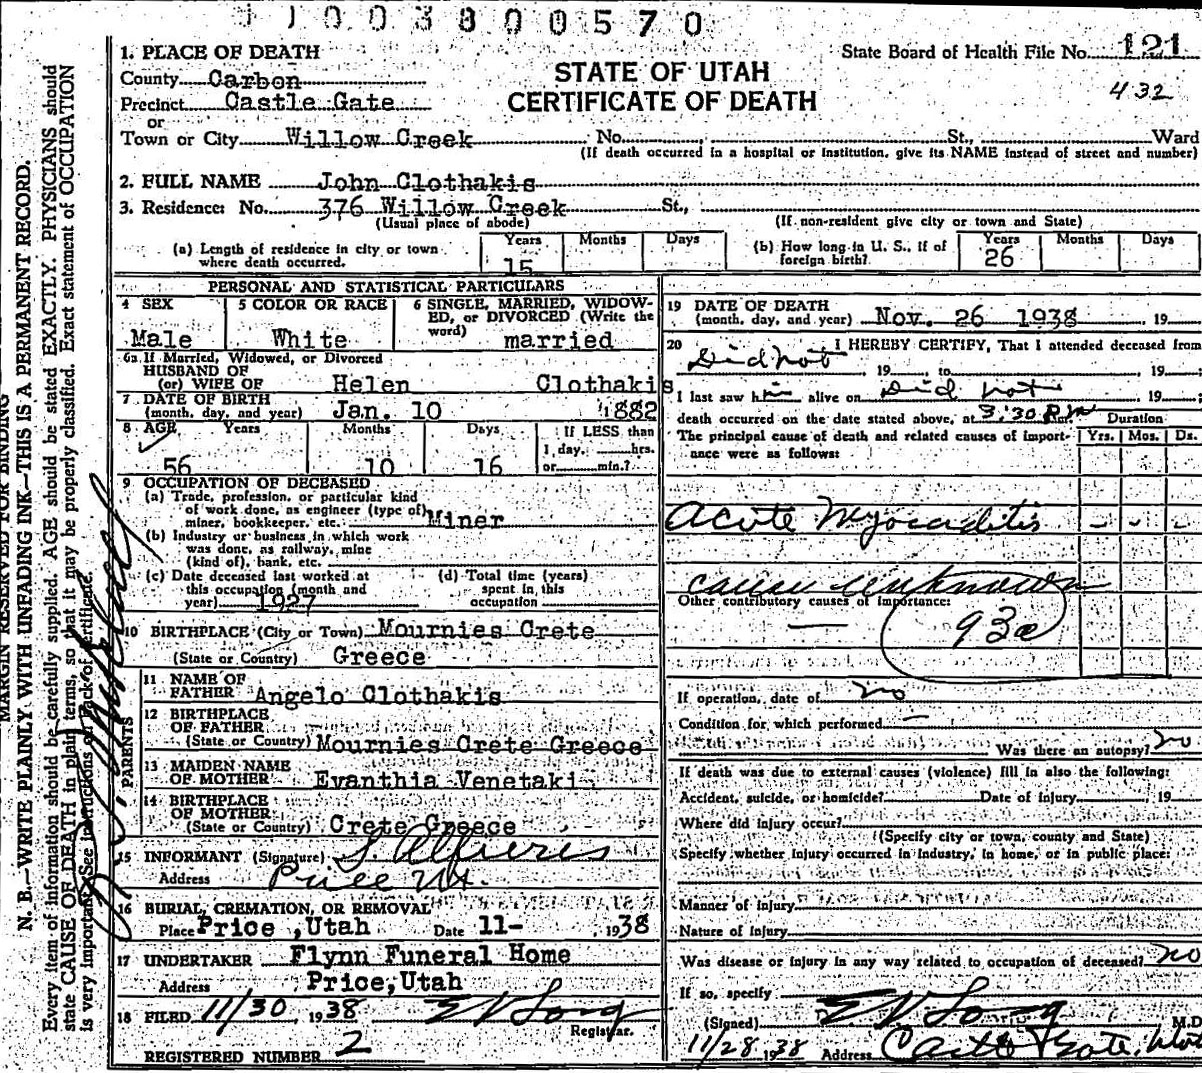 1 1 0 0 3 8 0 0 5 7 0
State Board of Health File No. 121
432
STATE OF UTAH
CERTIFICATE OF DEATH
1. PLACE OF DEATH
County Carbon
Precinct Castle Gate
or
Town or City Willow Creek No. St., Ward
(If death occurred in a hospital or institution, give its NAME instead of street and number)
2. FULL NAME John Clothakis
3. Residence: No. 376 Willow Creek St.,
(Usual place of abode) (If non-resident give city or town and State)
(a) Length of residence in city or town where death occurred. Years 15 Months Days
(b) How long in U. S., if of foreign birth? Years 26 Months Days
PERSONAL AND STATISTICAL PARTICULARS
4 SEX Male
5 COLOR OR RACE White
6 SINGLE, MARRIED, WIDOWED, or DIVORCED (Write the word) married
6a If Married, Widowed, or Divorced
HUSBAND OF
(or) WIFE OF Helen Clothakis
7 DATE OF BIRTH
(month, day, and year) Jan. 10 1882
8 AGE Years 56 Months 10 Days 16 If LESS than 1 day, hrs. or min.?
9 OCCUPATION OF DECEASED
(a) Trade, profession, or particular kind
of work done, as engineer (type of)
miner, bookkeeper, etc. Miner
(b) Industry or business in which work
was done, as railway, mine
(kind of), bank, etc.
(c) Date deceased last worked at
this occupation (month and
year) 1927
(d) Total time (years)
spent in this
occupation
10 BIRTHPLACE (City or Town) Mournies Crete
(State or Country) Greece
PARENTS
11 NAME OF
FATHER Angelo Clothakis
12 BIRTHPLACE
OF FATHER
(State or Country) Mournies Crete Greece
13 MAIDEN NAME
OF MOTHER Evanthia Venetaki
14 BIRTHPLACE
OF MOTHER
(State or Country) Crete Greece
15 INFORMANT (Signature)
Address Price Ut.
16 BURIAL, CREMATION, OR REMOVAL
Place Price ,Utah Date 11- , 1938
17 UNDERTAKER Flynn Funeral Home
Address Price,Utah
18 FILED 11/30 1938 E V Long
Registrar.
REGISTERED NUMBER 2
19 DATE OF DEATH
(month, day, and year) Nov. 26 1938 , 19
20 I HEREBY CERTIFY, That I attended deceased from
Did not , 19 , to , 19 ;
I last saw him alive on Did not , 19 ;
death occurred on the date stated above, at 3:30 P.m. Duration
The principal cause of death and related causes of importance were as follows: Yrs. Mos. Ds.
Acute Myocarditis - - -
cause unknown
Other contributory causes of importance:
— 93a
If operation, date of no
Condition for which performed —
Was there an autopsy? no
If death was due to external causes (violence) fill in also the following:
Accident, suicide, or homicide? Date of injury , 19
Where did injury occur?
(Specify city or town, county and State)
Specify whether injury occurred in industry, in home, or in public place:
Manner of injury
Nature of injury
Was disease or injury in any way related to occupation of deceased? no
If so, specify
(Signed) E V Long M.D.
11/28 1938 Address Castle Gate, Utah
MARGIN RESERVED FOR BINDING
N. B.—WRITE PLAINLY WITH UNFADING INK—THIS IS A PERMANENT RECORD.
Every item of information should be carefully supplied. AGE should be stated EXACTLY. PHYSICIANS should
state CAUSE OF DEATH in plain terms, so that it may be properly classified. Exact statement of OCCUPATION
is very important. See instructions on back of certificate.